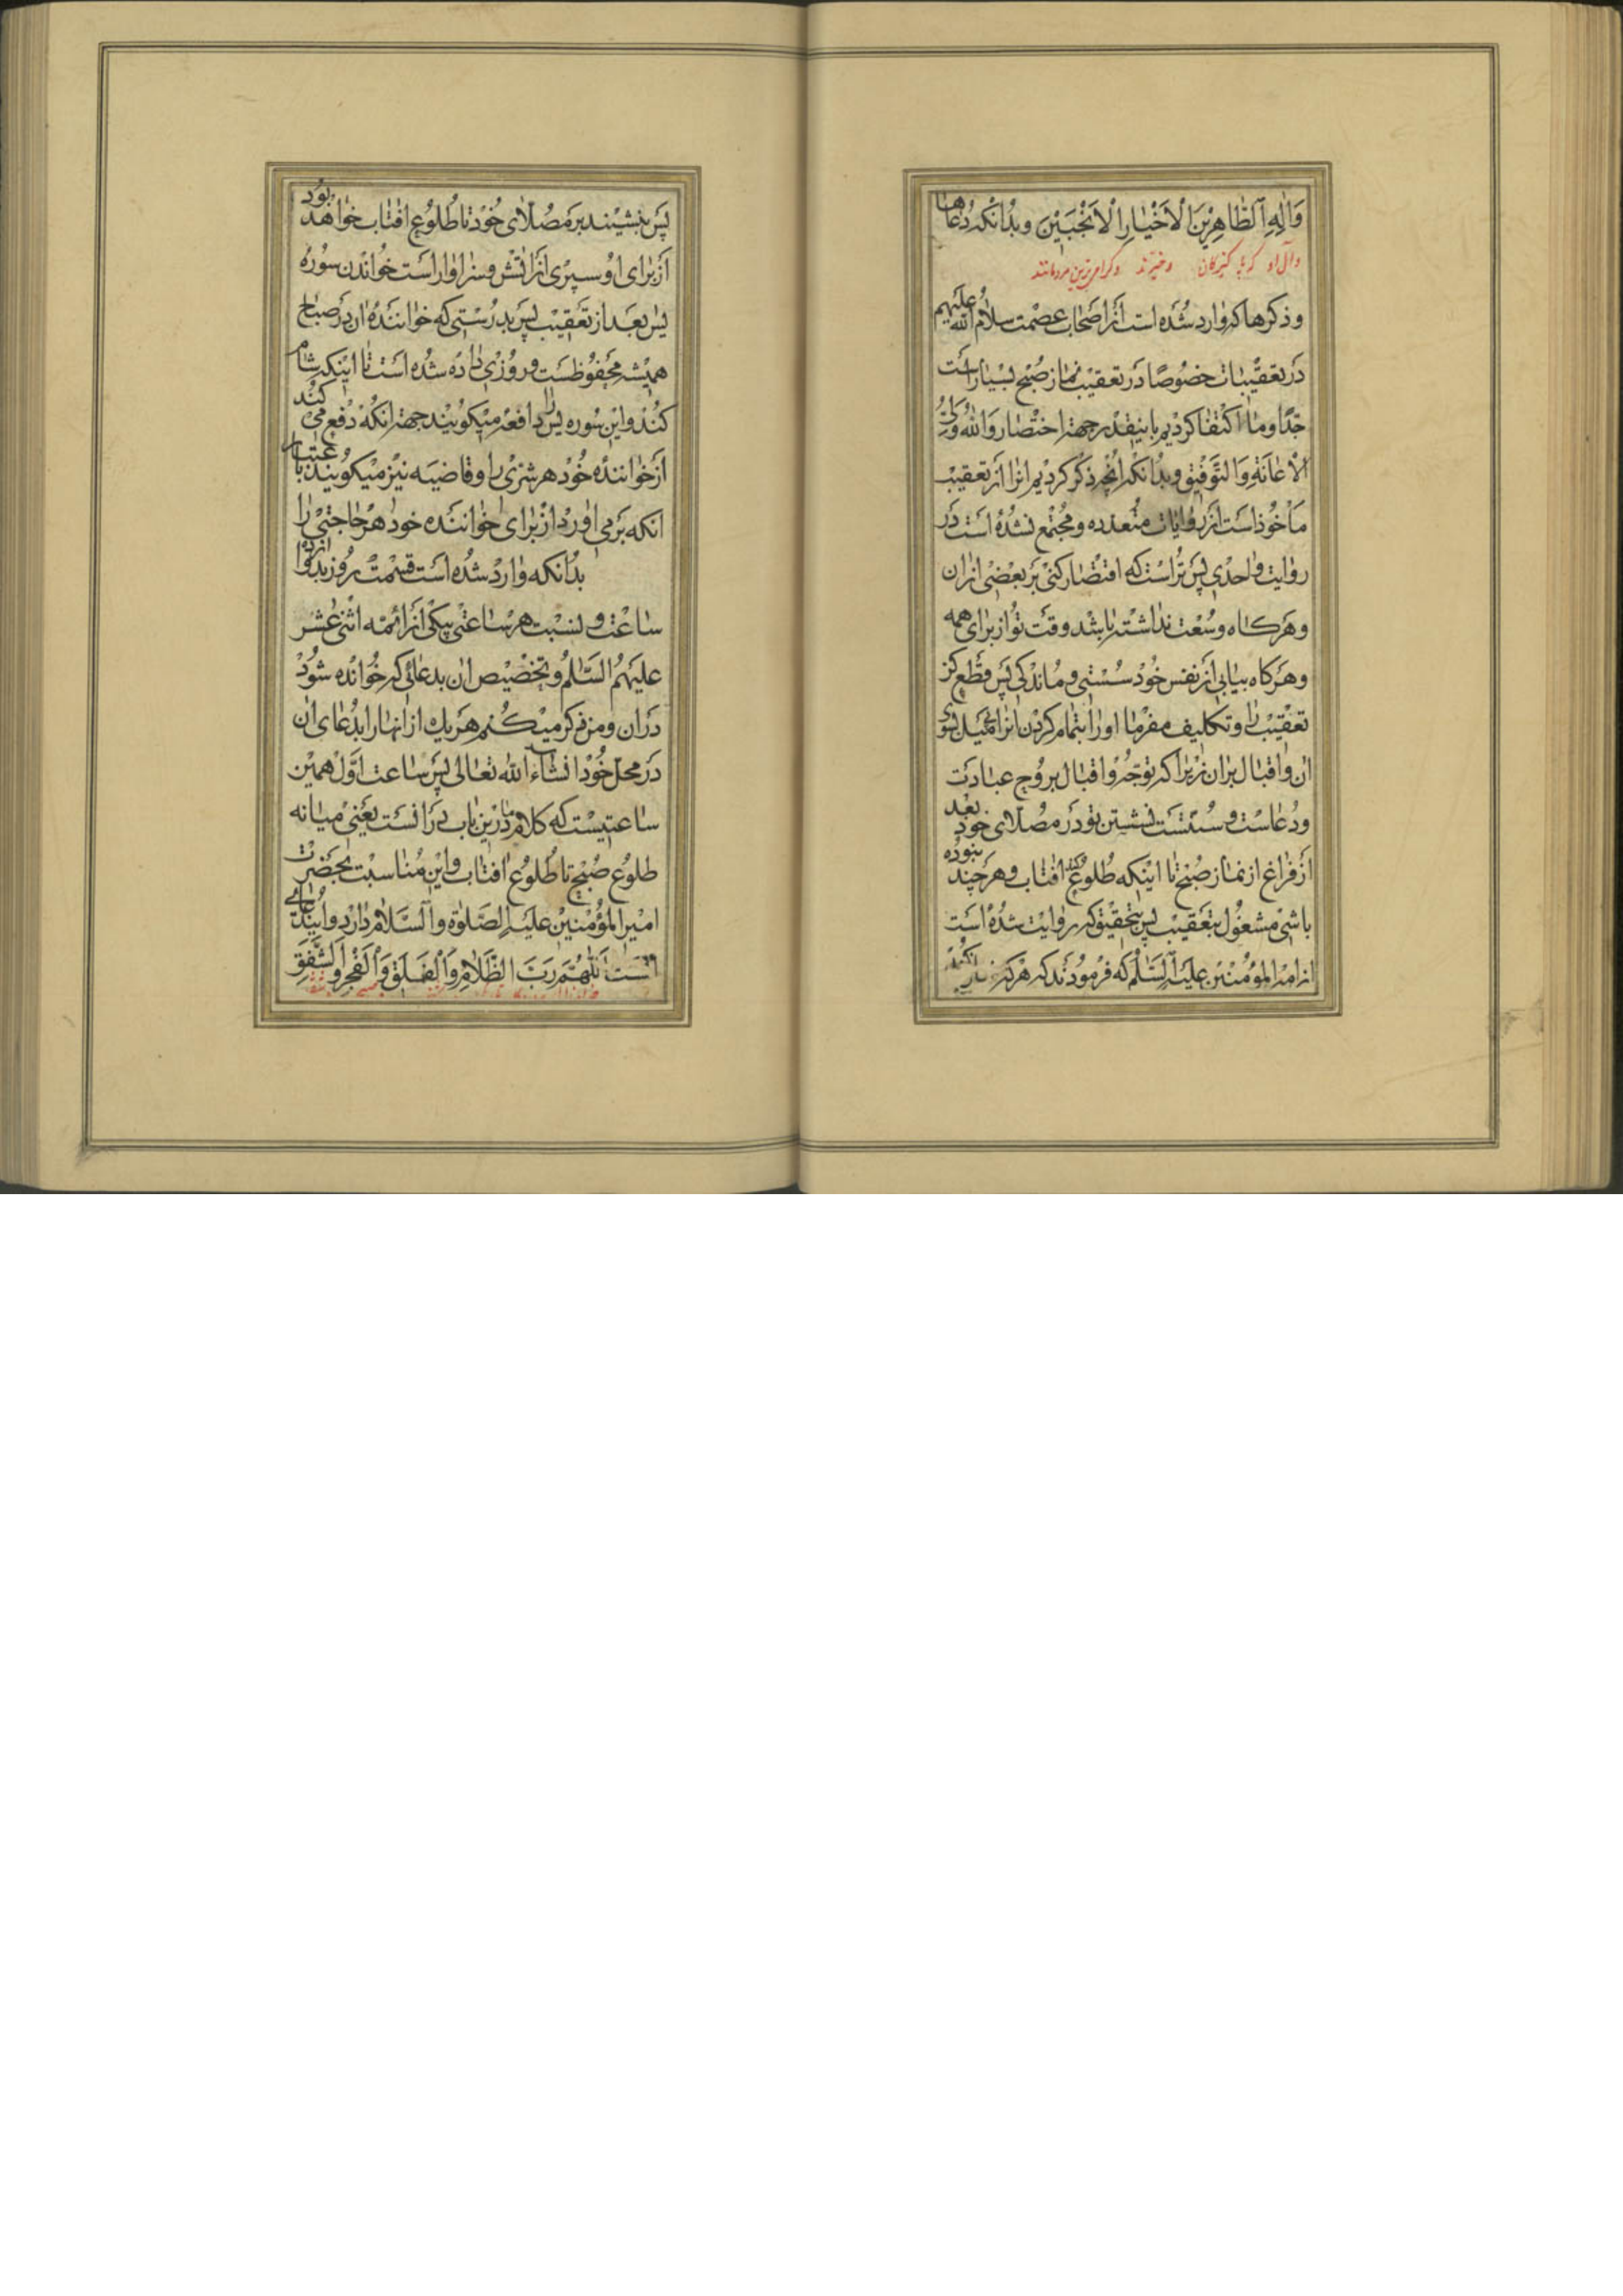 وَاٰلِهِ الطَّاهِرِيْنَ الْاَخْيَارِ الْاَنْجَبِيْنَ وبدانكه دُعاها
وآل او كه پاكيزگان وخيرند وگرامى‌ترين مردمانند
وذكرها كه وارد شُده است از اصحاب عصمت سلام الله عليهم
در تعقيبات خصوصًا در تعقيب نماز صُبح بسيار است
جدًا وما اكتفا كرديم باينقدر جهة اختصار والله ولىّ
الاعانة والتّوفيق وبدانكه آنچه ذكر كرديم انرا از تعقيب
مأخوذ است از روايات متعدده ومُجتمع نشده است در
روايت واحدى پس تراست كه اقتصار كنى بر بعضى ازان
وهركاه وسعت نداشته باشد وقت تو از براى همه
وهركاه بيابى از نفس خود سُستى وماندكى پس قطع كن
تعقيب را وتكليف مفرما اورا بتمام كردن انرا بى‌ميل بسوى
ان واقبال بران زيرا كه توجّه واقبال بروح عبادت
ودُعاست وسنتست نشستن تو در مصلاى خود بعد
از فراغ از نماز صُبح تا اينكه طلوع كند افتاب وهرچند نبوده
باشى مشغول بتعقيب پس بتحقيق كه روايت شده است
از امير المؤمنين عليه السّلم كه فرمودند كه هركه نماز كند
پس بنشيند بر مصلاى خود تا طلوع افتاب خواهد بود
از براى او سپرى از اتش وسزاوار است خواندن سوره
يس بعد از تعقيب پس بدرستى كه خواننده ان در صباح
هميشه محفوظست وروزى داده شده است تا اينكه شام
كند واين سوره يس را دافعه ميكويند جهة انكه دفع مى كند
از خواننده خود هر شرّى را وقاضيه نيز ميكويند باعتبار
انكه برمى اورد از براى خواننده خود هر حاجتى را
بدانكه وارد شده است قسمت روز بدوازده
ساعت ونسبت هر ساعتى بيكى از ائمّه اثنى عشر
عليهمُ السّلم وتخصيص ان بدعائى كه خوانده شود
دران ومن ذكر ميكنم هريك از انهارا بدعاى ان
در محل خود انشاء الله تعالى پس ساعت اوّل همين
ساعتيست كه كلام ما درين باب درانست يعنى ميانه
طلوع صبح تا طلوع افتاب واين مناسبت بحضرت
امير المؤمنين عليه الصّلوة والسّلام دارد واين دعاى
اوست اَللّٰهُمَّ رَبَّ الظَّلَامِ وَالْفَلَقِ وَالْفَجْرِ وَالشَّفَقِ